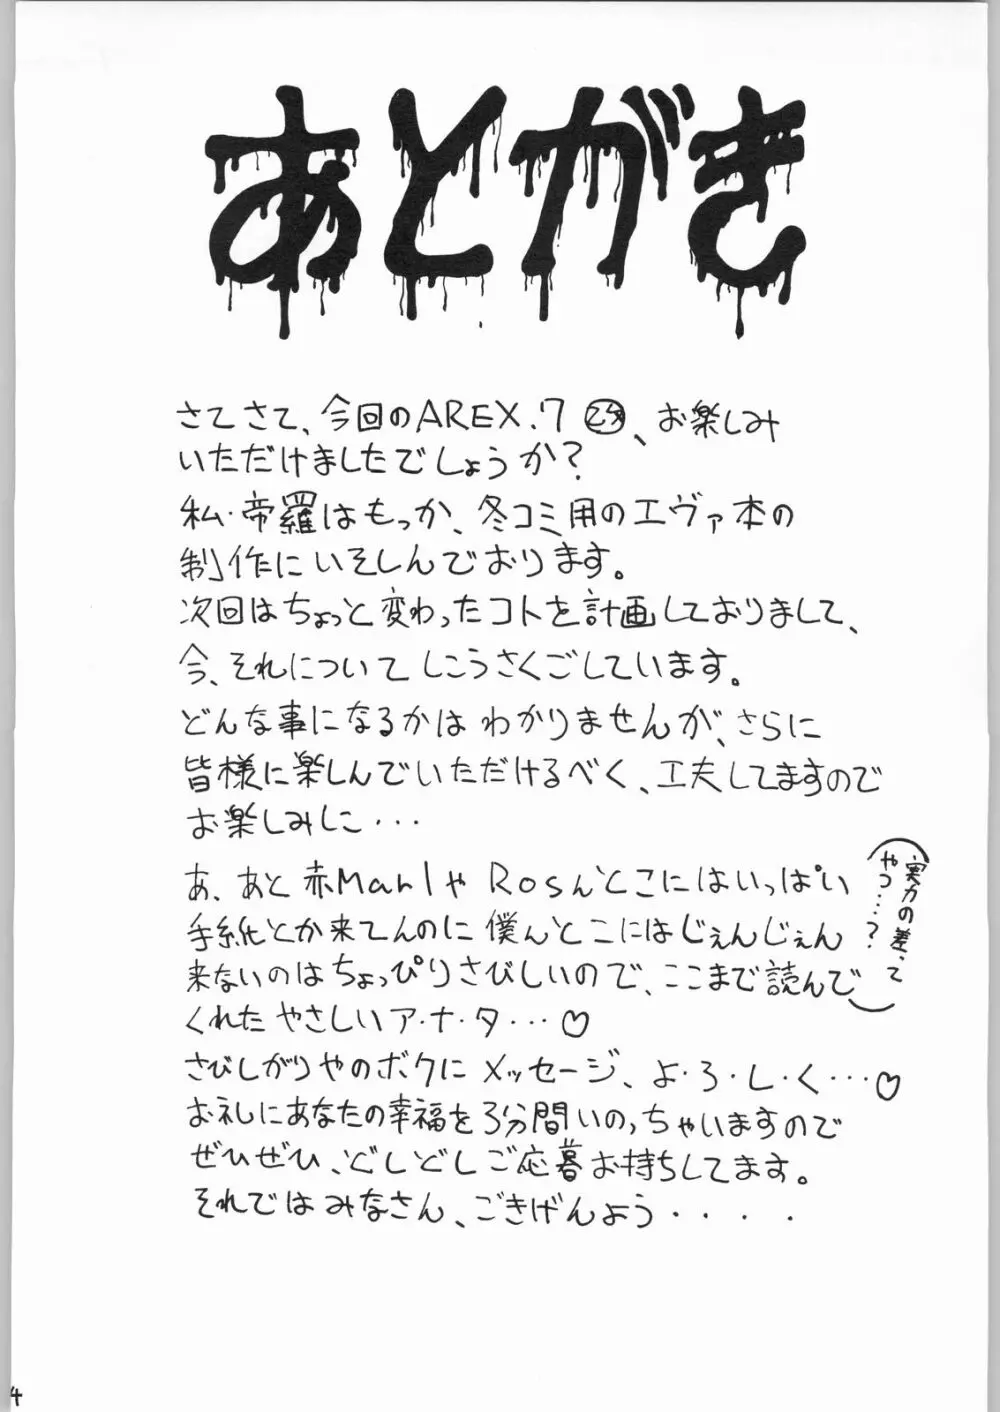 あとがき
さてさて、今回のAREX.7 、お楽しみ
いただけましたでしょうか?
私・帝羅はもっか、冬コミ用のエヴァ本の
制作にいそしんでおります。
次回はちょっと変わったコトを計画しておりまして、
今、それについてしこうさくごしています。
どんな事になるかはわかりませんが、さらに
皆様に楽しんでいただけるべく、工夫してますので
お楽しみに・・・
あ、あと赤MarlやRosんとこにはいっぱい
手紙とか来てんのに僕んとこにはじぇんじぇん
来ないのはちょっぴりさびしいので、ここまで読んで
くれたやさしいア・ナ・タ・・・♡
(実力の差、て
やつ・・・?)
さびしがりやのボクにメッセージ、よ・ろ・し・く・・・♡
お礼にあなたの幸福を3分間いのっちゃいますので
ぜひぜひ、どしどしご応募お待ちしてます。
それではみなさん、ごきげんよう・・・・
4